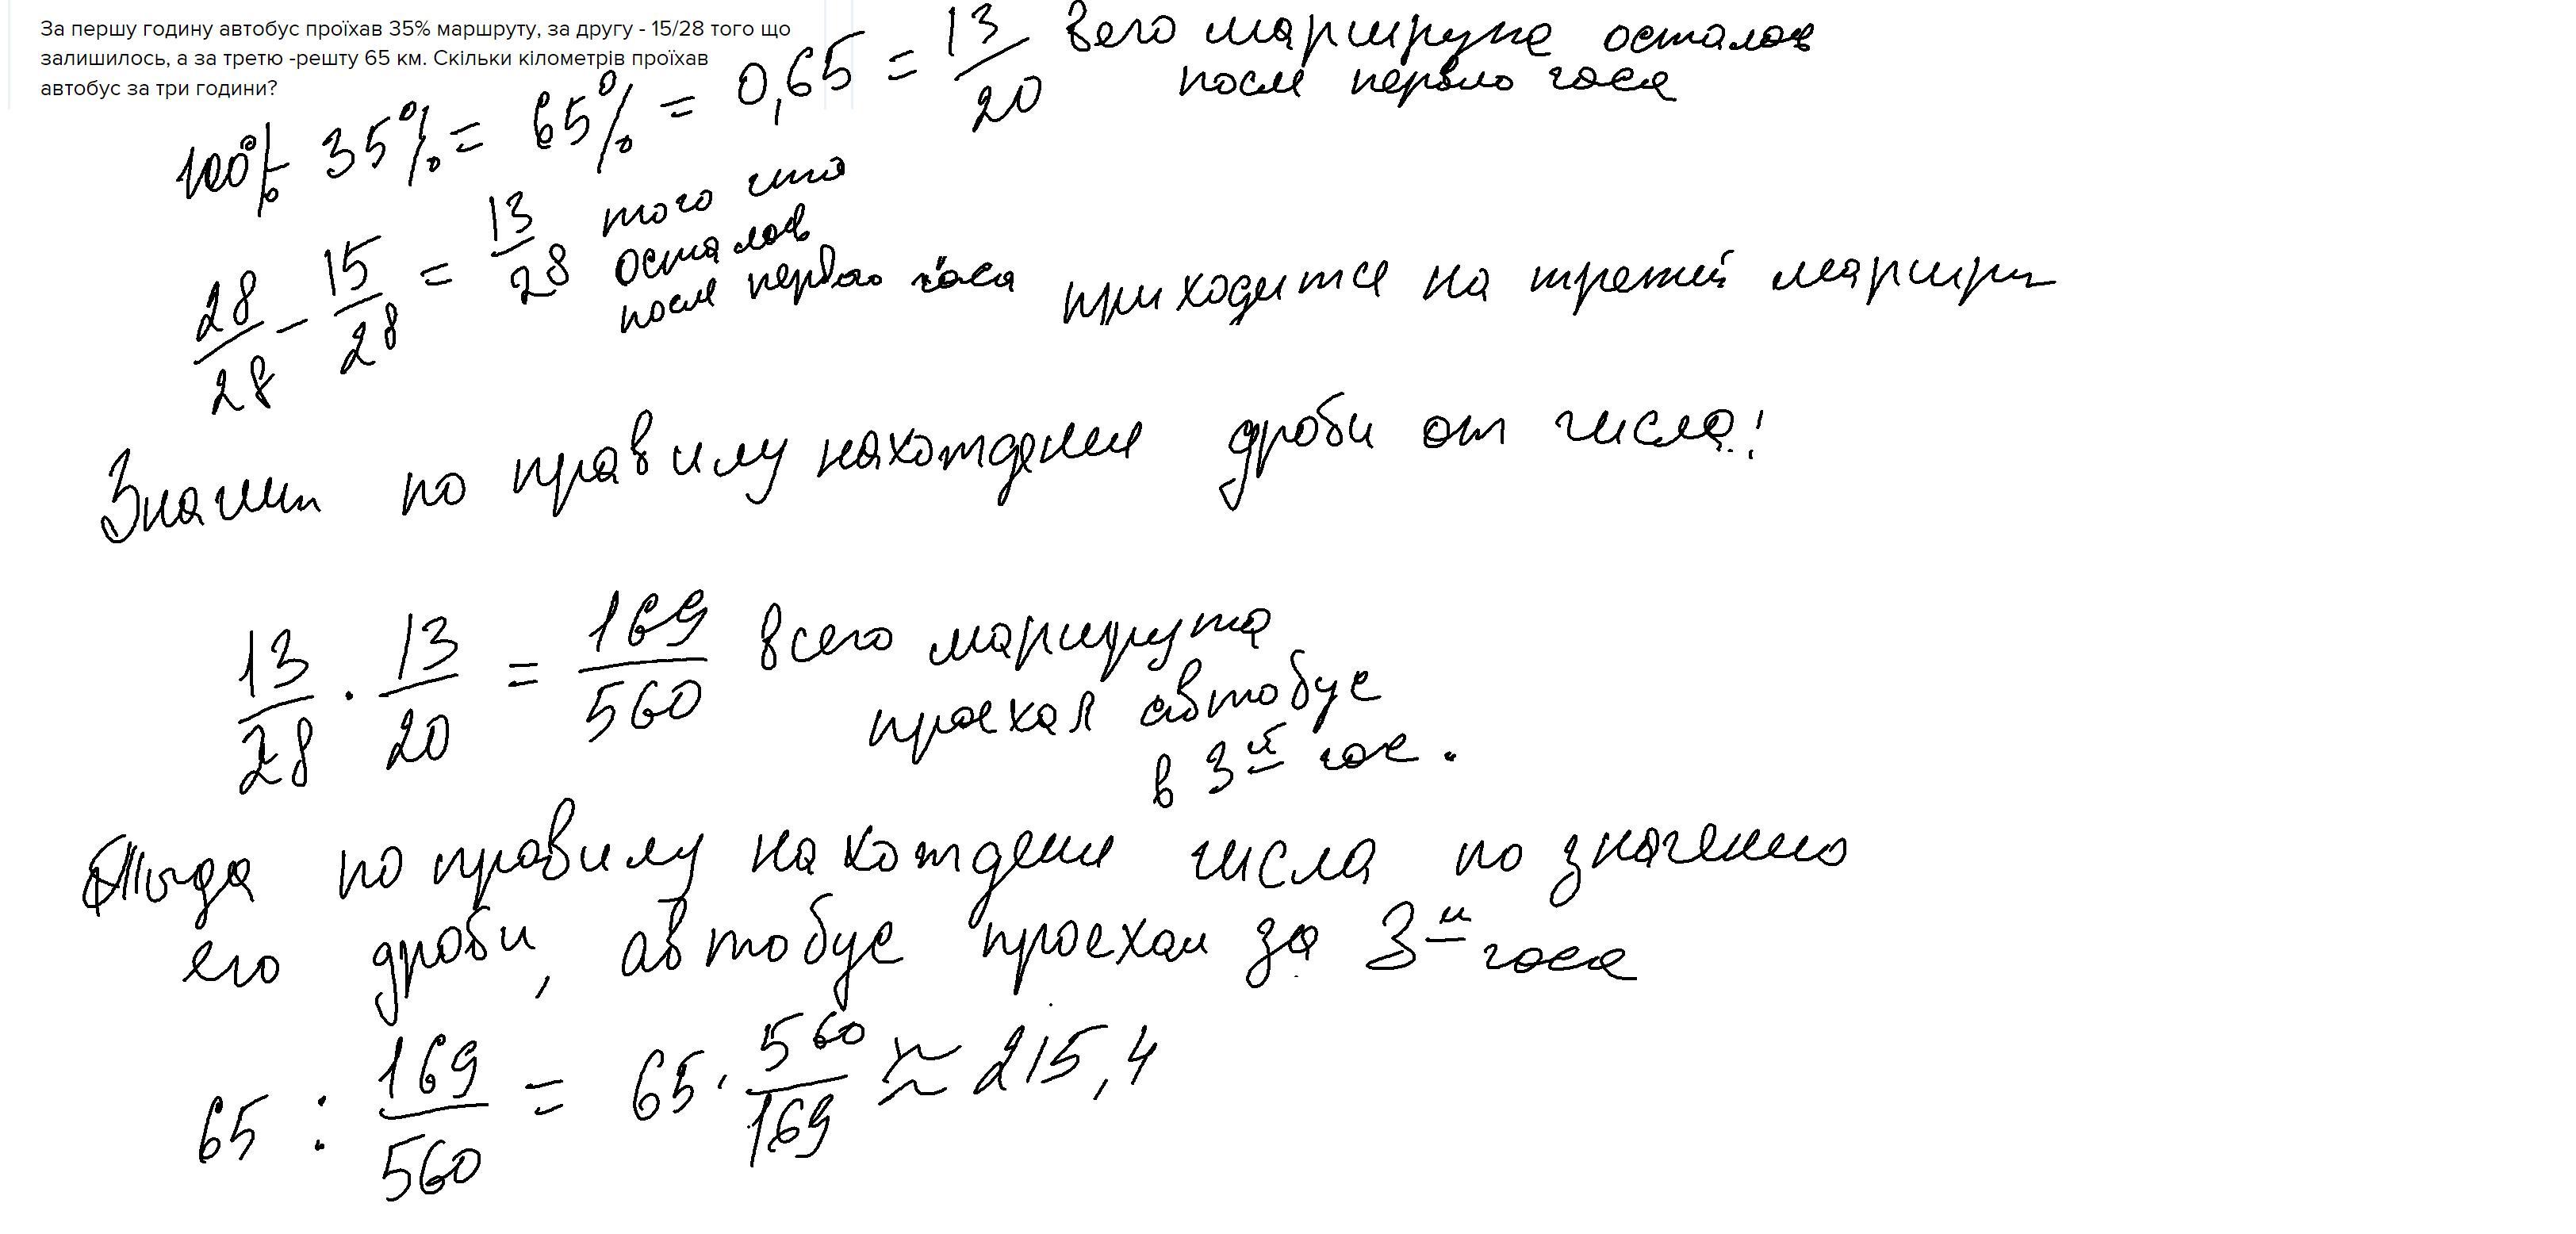 За першу годину автобус проїхав 35% маршруту, за другу - 15/28 того що
залишилось, а за третю -решту 65 км. Скільки кілометрів проїхав
автобус за три години?
100% - 35% = 65% = 0,65 = 13/20 всего маршрута осталось
после первого часа
28/28 - 15/28 = 13/28 того что
осталось
после первого часа приходится на третий маршрут
Значит по правилу нахождения дроби от числа:
13/28 · 13/20 = 169/560 всего маршрута
проехал автобус
в 3й час.
Тогда по правилу нахождения числа по значению
его дроби, автобус проехал за 3и часа
65 : 169/560 = 65 · 560/169 ≈ 215,4